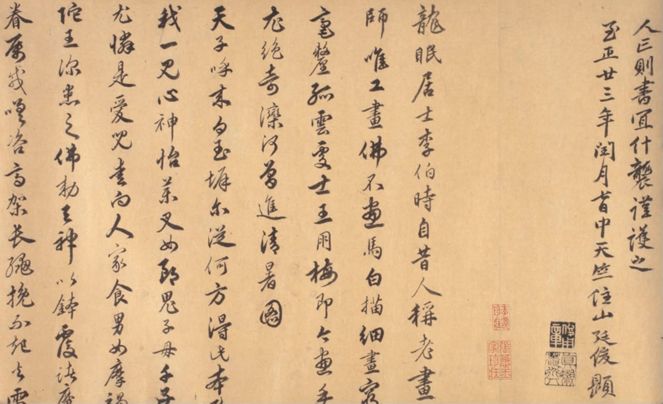 人正則書宜什襲謹護之
至正廿三年閏月中天竺住山廷俊題
龍眠居士李伯時自昔人稱老畫
師唯工畫佛不畫馬白描細畫窮
毫釐孤雲處士王用梅即今畫手
尤絕奇灤河曾進清暑圖
天子呼來白玉墀尔從何方得此本
我一見心神怡藥叉女即鬼子母千子
尤憐是愛兒向人家食男女摩竭
陀王深患之佛勅天神以鉢覆諸魔
眷屬或嘆咨高架長繩挽不起